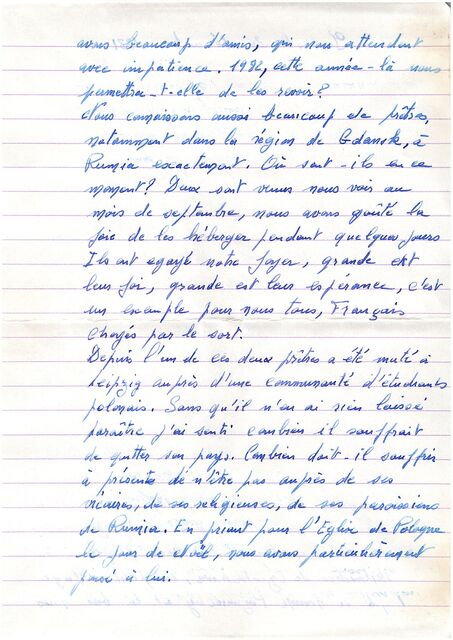 avons beaucoup d'amis, qui nous attendent
avec impatience. 1982, cette année-là nous
permettra-t-elle de les revoir?
Nous connaissons aussi beaucoup de prêtres,
notamment dans la région de Gdansk, à
Rumia exactement. Où sont-ils en ce
moment? Deux sont venus nous voir au
mois de septembre, nous avons goûté la
joie de les héberger pendant quelques jours
Ils ont égayé notre foyer, grande est
leur foi, grande est leur espérance, c'est
un exemple pour nous tous, Français
choyés par le sort.
Depuis l'un de ces deux prêtres a été muté à
Leipzig auprès d'une communauté d'étudiants
polonais. Sans qu'il n'en ai rien laissé
paraître j'ai senti combien il souffrait
de quitter son pays. Combien doit-il souffrir
à présent de n'être pas auprès de ses
vicaires, de ses religieuses, de ses paroissiens
de Rumia. En priant pour l'Eglise de Pologne
le jour de Noël, nous avons particulièrement
pensé à lui.